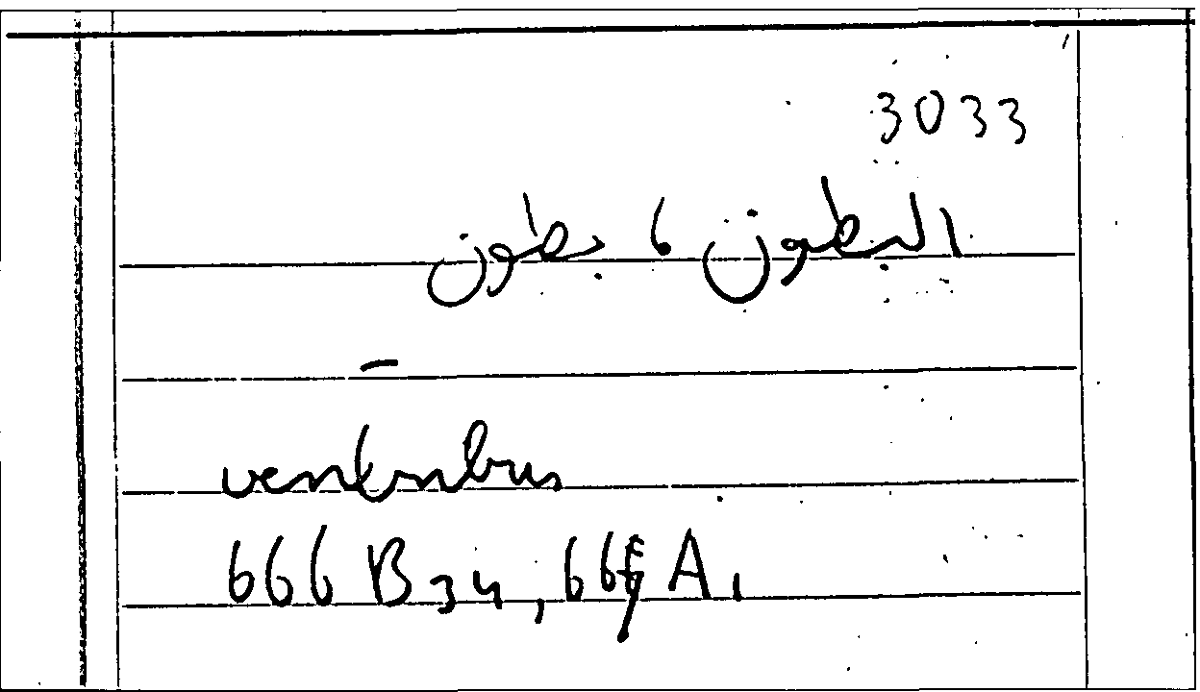 3033
البطون ، بطون
–
ventribus
666 B 34, 667 A 1